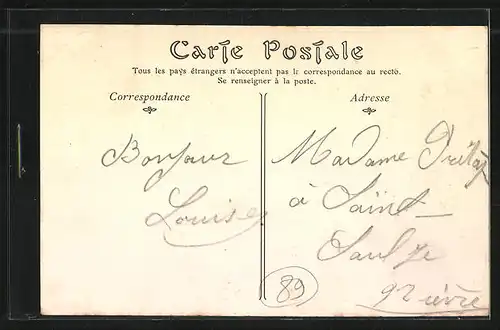 Carte Postale
Tous les pays étrangers n'acceptent pas la correspondance au recto.
Se renseigner à la poste.
Correspondance
Adresse
Bonjour
Louise
Madame
à Saint
Saulge
Nièvre
89